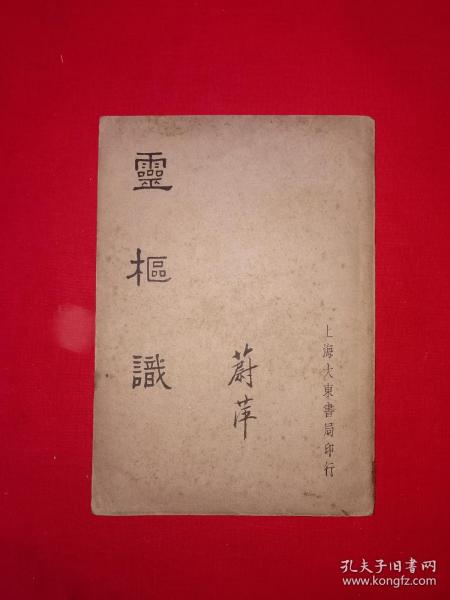 靈樞識
蔚萍
上海大東書局印行
孔夫子旧书网
www.kongfz.com